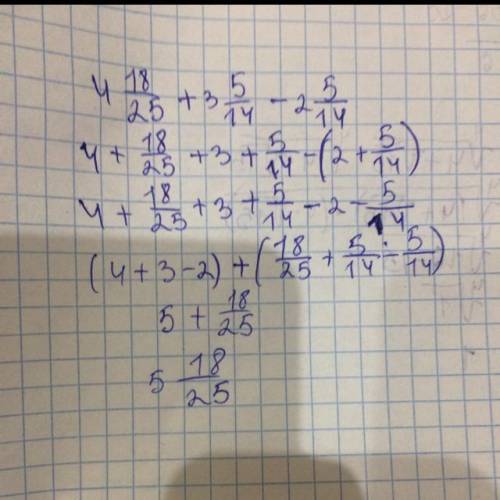 4 18/25 + 3 5/14 - 2 5/14
4 + 18/25 + 3 + 5/14 - (2 + 5/14)
4 + 18/25 + 3 + 5/14 - 2 - 5/14
(4 + 3 - 2) + (18/25 + 5/14 - 5/14)
5 + 18/25
5 18/25